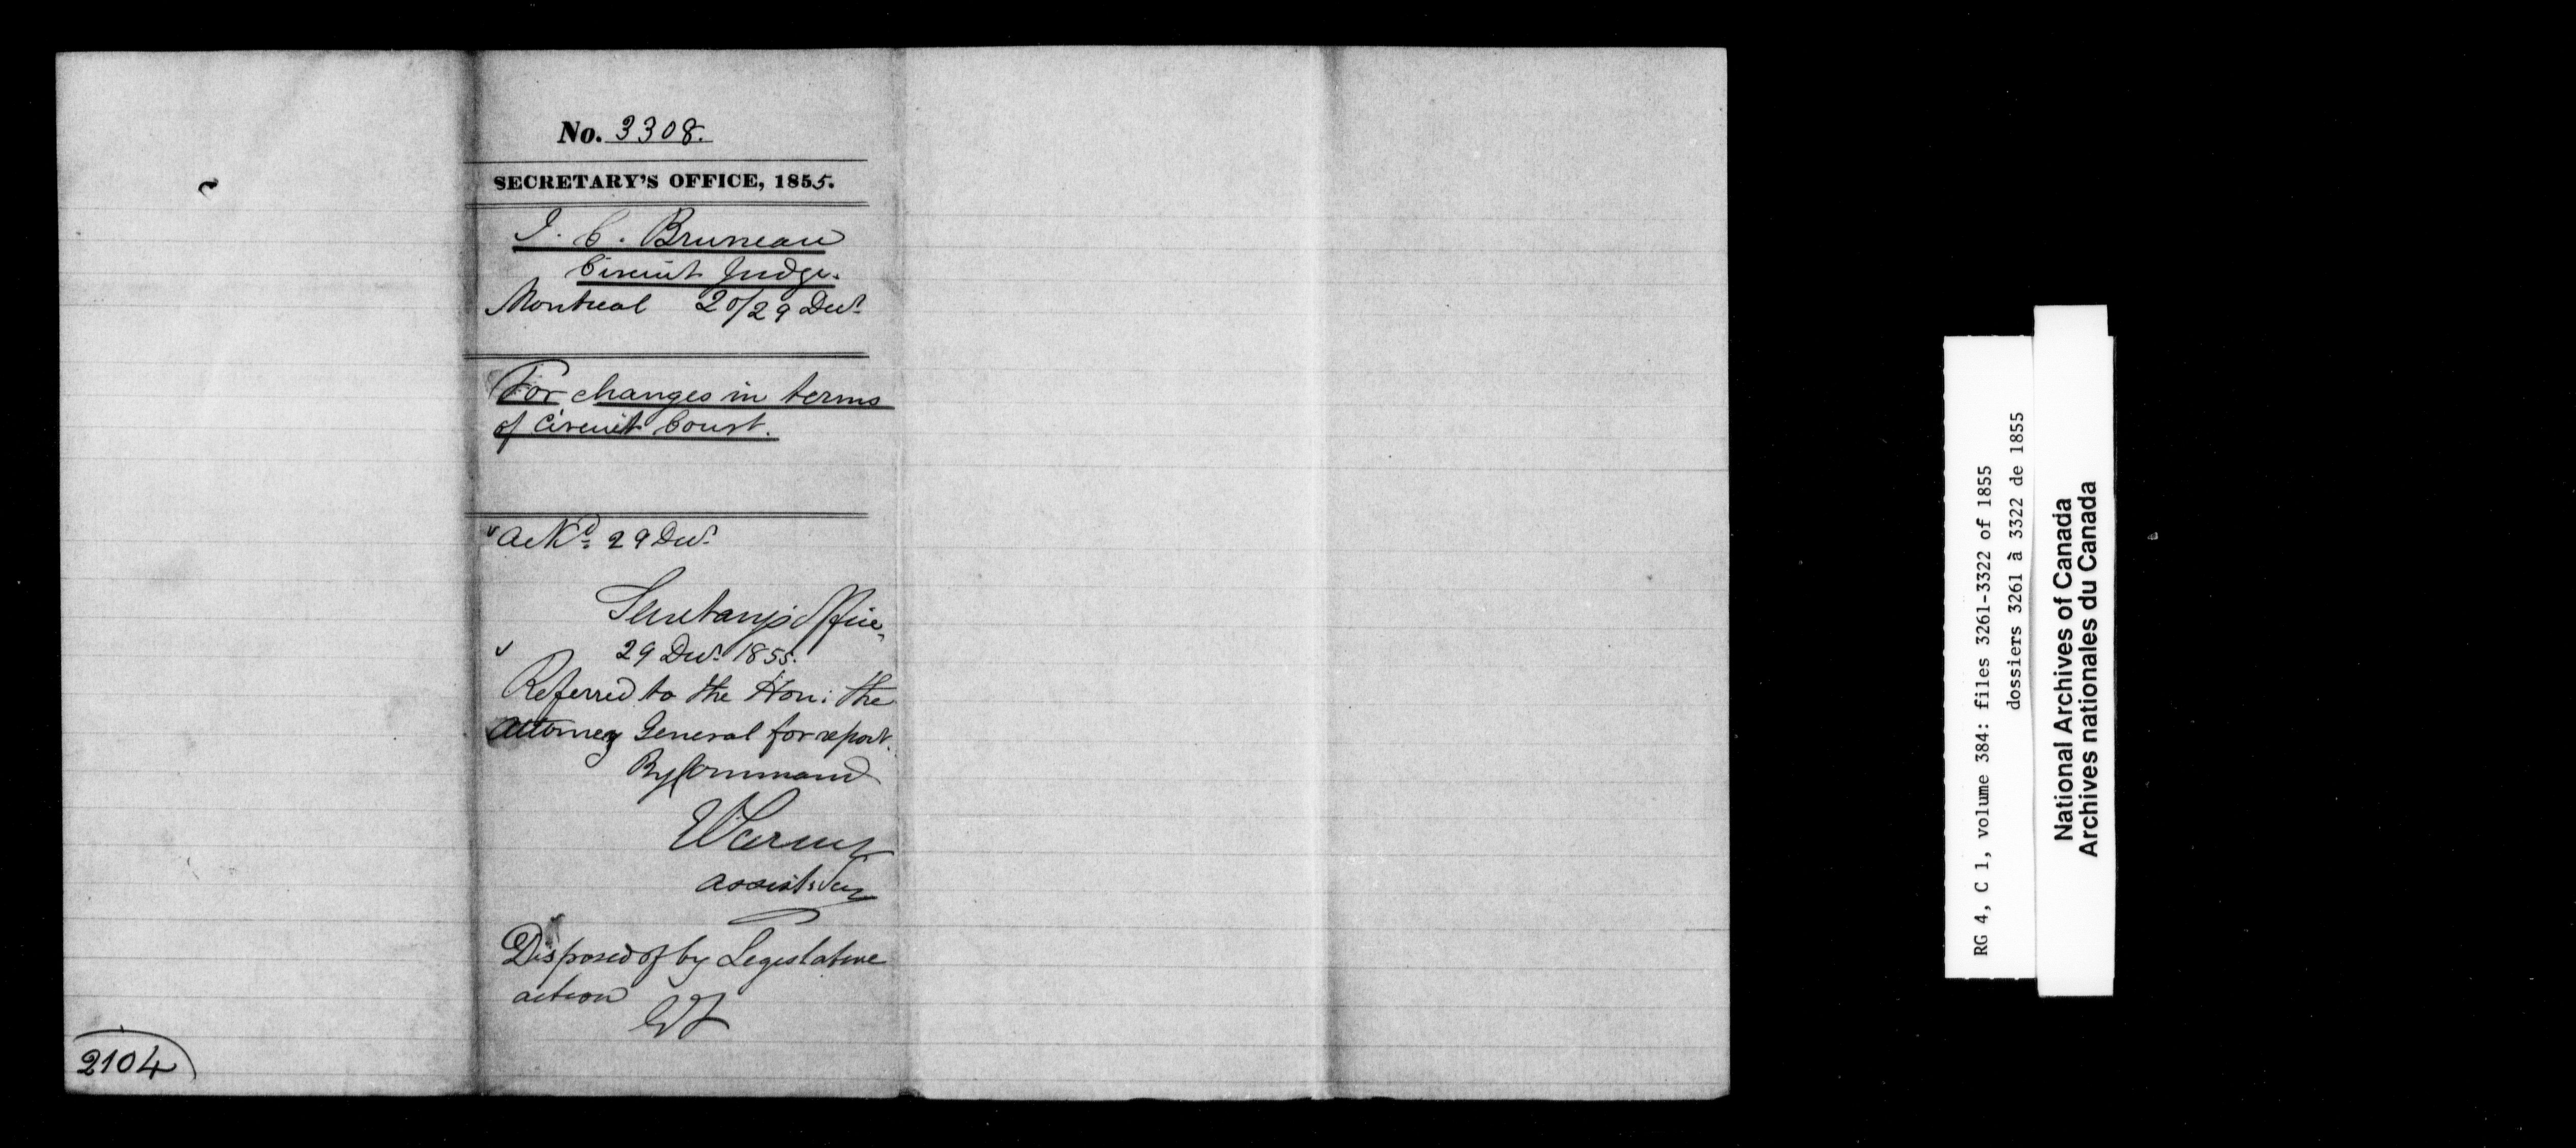 No. 3308.
SECRETARY'S OFFICE, 1855.
J. C. Bruneau
Circuit Judge.
Montreal 20/29 Decr.
For changes in terms
of Circuit Court.
Ackd. 29 Decr.
Secretary's Office,
29 Decr. 1855.
Referred to the Hon: the
Attorney General for report.
By Command
Assist: Secy
Disposed of by Legislative
action
2104
RG 4, C 1, volume 384: files 3261-3322 of 1855
dossiers 3261 à 3322 de 1855
National Archives of Canada
Archives nationales du Canada